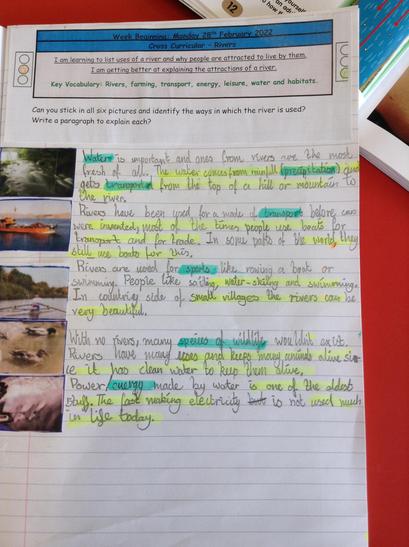 12
Week Beginning: Monday 28th February 2022
Cross Curricular - Rivers
I am learning to list uses of a river and why people are attracted to live by them.
I am getting better at explaining the attractions of a river.
Key Vocabulary: Rivers, farming, transport, energy, leisure, water and habitats.
Can you stick in all six pictures and identify the ways in which the river is used?
Write a paragraph to explain each?
Water is important and ones from rivers are the most
fresh of all. The water comes from rainfall (precipitation) and
gets transported from the top of a hill or mountain to
the river.
Rivers have been used for a mode of transport before cars
were invented, most of the times people use boats for
transport and for trade. In some parts of the world, they
still use boats for this.
Rivers are used for sports like rowing a boat or
swimming. People like sailing, water-skiing and swimming.
In country side of small villages the rivers can be
very beautiful.
With no rivers, many species of wildlife wouldn't exist.
Rivers have many uses and keeps many animals alive
it has clean water to keep them alive.
Power/energy made by water is one of the oldest
stuff. The making electricity is not used much
in life today.